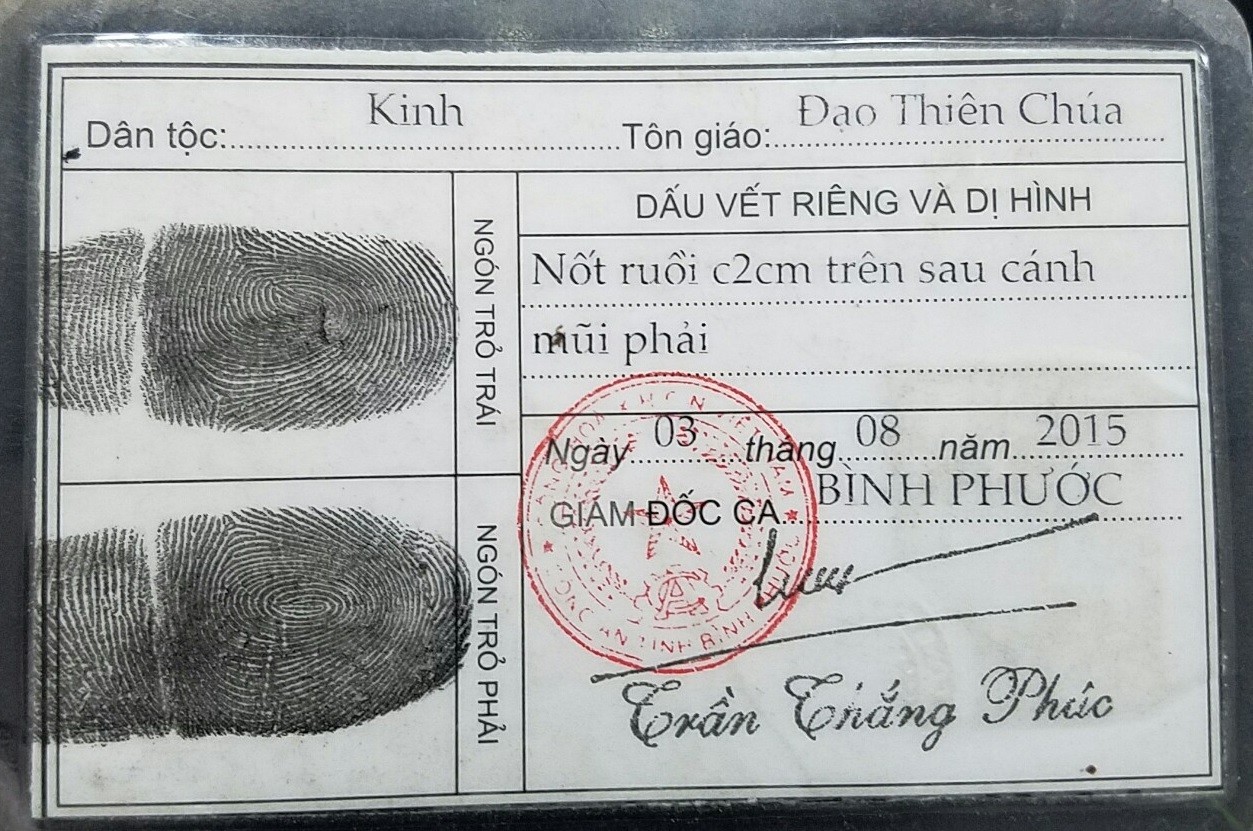 Dân tộc: Kinh Tôn giáo: Đạo Thiên Chúa
NGÓN TRỎ TRÁI
NGÓN TRỎ PHẢI
DẤU VẾT RIÊNG VÀ DỊ HÌNH
Nốt ruồi c2cm trên sau cánh
mũi phải
Ngày 03 tháng 08 năm 2015
GIÁM ĐỐC CA BÌNH PHƯỚC
Trần Thắng Phúc